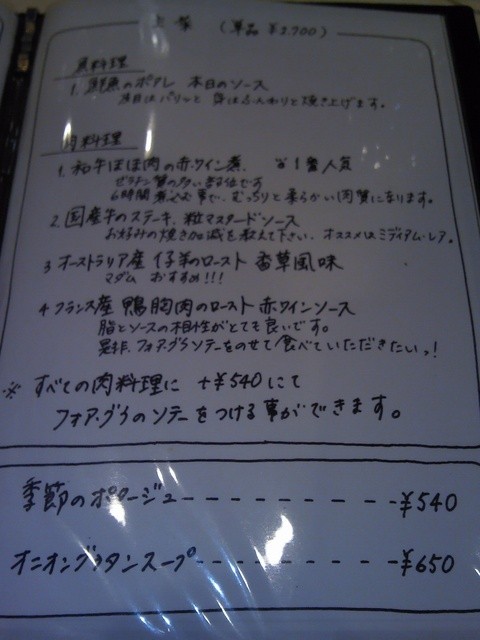 主菜 (単品 ¥2,700)
魚料理
1. 鮮魚のポアレ 本日のソース
皮目はパリッと 身はふんわりと焼き上げます。
肉料理
1. 和牛ほほ肉の赤ワイン煮 1番人気
ゼラチン質の多い部位です
6時間煮込む事で、むっちりと柔らかい肉質になります。
2. 国産牛のステーキ、粒マスタードソース
お好みの焼き加減を教えて下さい。オススメはミディアム・レア。
3 オーストラリア産 仔羊のロースト 香草風味
マダム おすすめ!!!
4 フランス産 鴨胸肉のロースト 赤ワインソース
脂とソースの相性がとても良いです。
是非、フォアグラソテーをのせて食べていただきたいっ!
※ すべての肉料理に +¥540にて
フォアグラのソテーをつける事ができます。
季節のポタージュ---------¥540
オニオングラタンスープ---------¥650